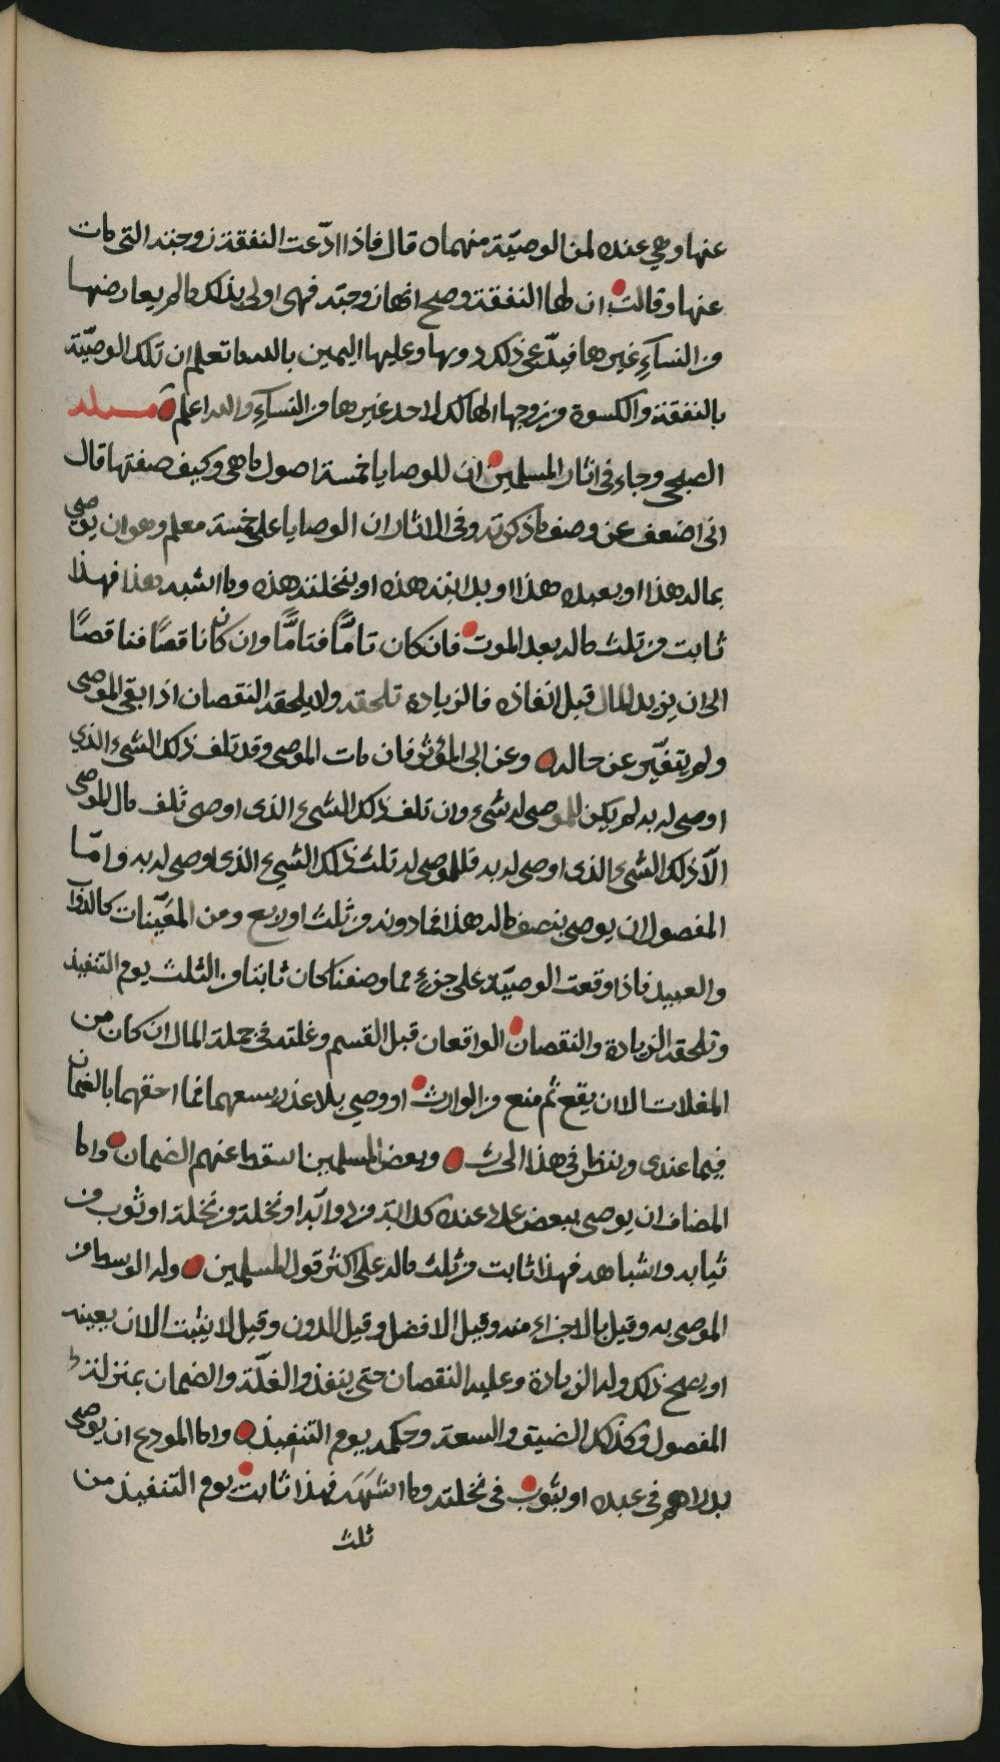 عنها وهي عنده لمن الوصيّة منهما ه قال فاذا ادّعت النفقة زوجته التي مات
عنها وقالت ان لها النفقة وصح انها زوجته فهي اولى بذلك ما لم يعارضها
من النساءِ غيرها فيدّعي ذلك دونها وعليها اليمين بالله ما تعلم ان تلك الوصيّة
بالنفقة والكسوة من زوجها الهالك لاحد غيرها من النساءِ والله اعلم مسئلة
الصبحي وجاء في اثار المسلمين ان للوصايا خمسة اصول ما هي وكيف صفتها قال
اني اضعف عن وصف ما ذكرته وفي الاثار ان الوصايا على خمسة معلم وهو ان يوصي
بماله هذا او بعبده هذا او بدابته هذه او بنخلته هذه وما اشبه هذا فهذا
ثابت من ثلث ماله بعد الموت فان كان تامًّا فتامًّا وان كان ناقصًا فناقصًا
الى ان يزيد المال قبل انفاذه فالزيادة تلحقه ولا يلحقه النقصان اذا بقي الموصى
ولم يتغيّر عن حاله وعن ابي المؤثر فان مات الموصي وقد تلف ذلك الشيء الذي
اوصى له به لم يكن للموصى له شيء وان تلف ذلك الشيء الذي اوصى تلف مال الموصي
الّا ذلك الشيء الذي اوصى له به فللموصى له ثلث ذلك الشيء الذي اوصى له به وامّا
المفصول ان يوصي بنصف ماله هذا فما دونه من ثلث او ربع ومن المعَيّنات كالدواب
والعبيد فاذا وقعت الوصيّة على جزءٍ مما وصفنا كان ثابتا من الثلث يوم التنفيذ
وتلحقه الزيادة والنقصان الواقعان قبل القسم وغلته في جملة المال ان كان من
المغلات الا ان يقع ثم منع من الوارث او وصي بلا عذر يسعهما فما احقهما بالضمان
فيما عندي وينظر في هذا الحرف وبعض المسلمين اسقط عنهم الضمان واما
المضاف ان يوصي ببعض ما عنده كدابّة من دوابّه او نخلة من نخله او ثوب من
ثيابه واشباهه فهذا ثابت من ثلث ماله على اكثر قول المسلمين وله الوسط من
الموصى به وقيل بالاجزاء منه وقيل الافضل وقيل الدون وقيل لا يثبت الا ان يعينه
او يصح ذلك وله الزيادة وعليه النقصان حتى ينفذ والغلّة والضمان بمنزلة
المفصول وكذلك الضيق والسعة وحكمه يوم التنفيذ واما المودع ان يوصي
بدراهم في عبده او بثوب في نخلته وما اشبهه فهذا ثابت يوم التنفيذ من
ثلث